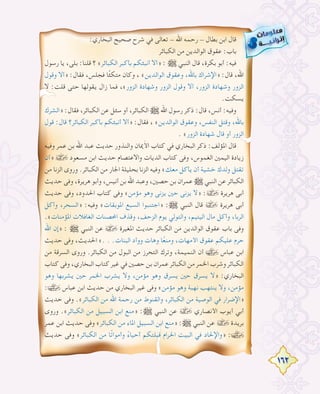 معلومات إثرائية
قال ابن بطال – رحمه الله – تعالى في شرح صحيح البخاري:
باب: عقوق الوالدين من الكبائر
فيه: أبو بكرة، قال النبي ﷺ: «ألا أنبئكم بأكبر الكبائر»؟ قلنا: بلى، يا رسول
الله، قال: «الإشراك بالله، وعقوق الوالدين»، وكان متكئا فجلس، فقال: «ألا وقول
الزور وشهادة الزور، ألا وقول الزور وشهادة الزور»، فما زال يقولها حتى قلت: لا
يسكت.
وفيه: أنس، قال: ذكر رسول الله ﷺ الكبائر، أو سئل عن الكبائر، فقال: «الشرك
بالله، وقتل النفس، وعقوق الوالدين»، فقال: «ألا أنبئكم بأكبر الكبائر؟ قال: قول
الزور أو قال شهادة الزور».
قال المؤلف: ذكر البخاري في كتاب الأيمان والنذور حديث عبد الله بن عمر وفيه
زيادة اليمين الغموس، وفى كتاب الديات والاعتصام حديث ابن مسعود «أن
تقتل ولدك خشية أن يأكل معك» وفيه الزنا بحليلة الجار من الكبائر. وروى الزنا من
الكبائر عن النبي ﷺ عمران بن حصين، وعبد الله بن أنيس، وأبو هريرة، وفى حديث
أبي هريرة: «لا يزنى حين يزنى وهو مؤمن» وفى كتاب الحدود، وفى حديث
أبي هريرة قال النبي ﷺ: «اجتنبوا السبع الموبقات» وفيه: «السحر، وأكل
الربا، وأكل مال اليتيم، والتولي يوم الزحف، وقذف المحصنات الغافلات المؤمنات».
وفى باب عقوق الوالدين من الكبائر حديث المغيرة عن النبي ﷺ: «إن الله
حرم عليكم عقوق الأمهات، ومنعًا وهات ووأد البنات...» الحديث، وفى حديث
ابن عباس أن النميمة، وترك التحرز من البول من الكبائر. وروى السرقة من
الكبائر وشرب الخمر من الكبائر عمران بن حصين في غير كتاب البخاري، وفى كتاب
البخاري: «لا يسرق حين يسرق وهو مؤمن، ولا يشرب الخمر حين يشربها وهو
مؤمن، ولا ينتهب نهبة وهو مؤمن» وفى غير البخاري من حديث ابن عباس:
«الإضرار في الوصية من الكبائر، والقنوط من رحمة الله من الكبائر». وفى حديث
أبي أيوب الأنصاري عن النبي ﷺ: «منع ابن السبيل من الكبائر». وروى
بريدة عن النبي ﷺ: «منع ابن السبيل الماء من الكبائر» وفى حديث ابن عمر
: «والإلحاد في البيت الحرام قبلتكم أحياءً وأمواتًا من الكبائر» وفى حديث
١٦٢